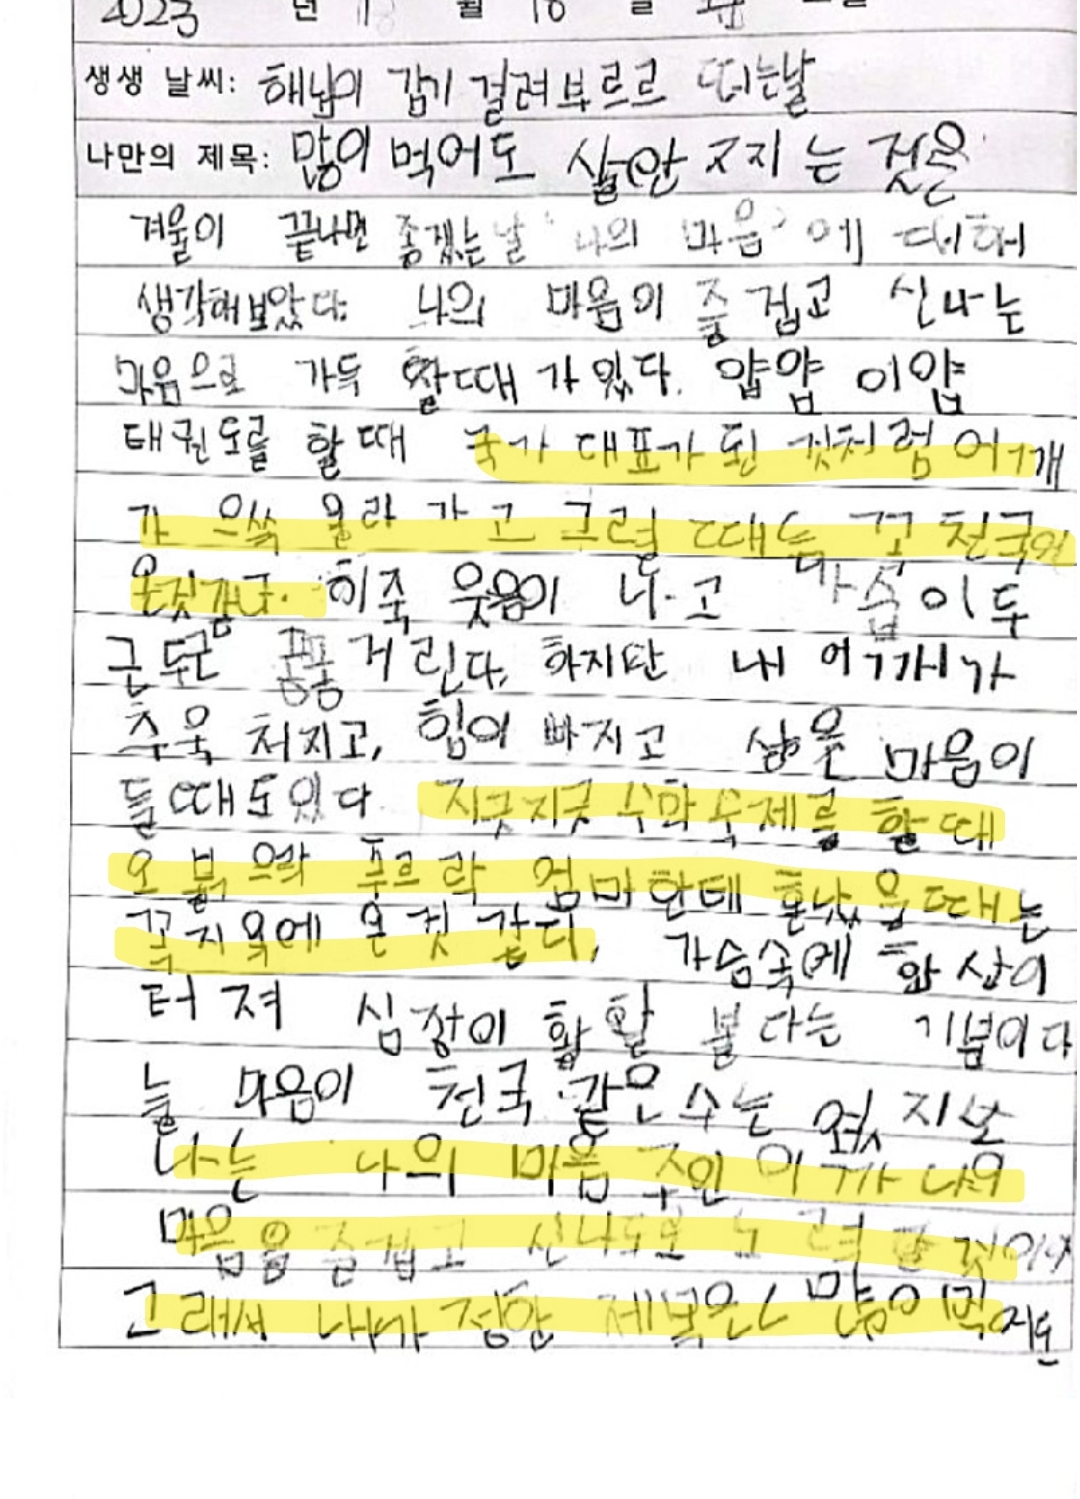 2023 년 월 18 일
생생 날씨: 해님이 감기 걸려부르르 떠는날
나만의 제목: 많이 먹어도 살안 찌지 는 것은
겨울이 끝나면 좋겠는 날 '나의 마음'에 대해
생각해보았다. 나의 마음이 즐겁고 신나는
마음으로 가득 찰때가있다. 얍얍 이얍
태권도를 할때 국가 대표가 된 것처럼 어깨
가 으쓱 올라 가고 그럴 때는 꼭 천국에
온것같다. 히죽 웃음이 나고 가슴이두
근두근 콩콩 거린다. 하지만 내 어깨가
추욱 처지고, 힘이 빠지고 싶은 마음이
들때도있다 지긋지긋 수학숙제를 할때
오붉으락 푸르락 엄마한테 혼났을때는
꼭지옥에 온것 같다, 가슴속에 화산이
터져 심장이 활활 불타는 기분이다
늘 마음이 천국 같은수는 없지만
나는 나의 마음 주인이니까 나의
마음을 즐겁고 신나도록 노력할것이다
그래서 내가 정한 제목은 많이먹어도